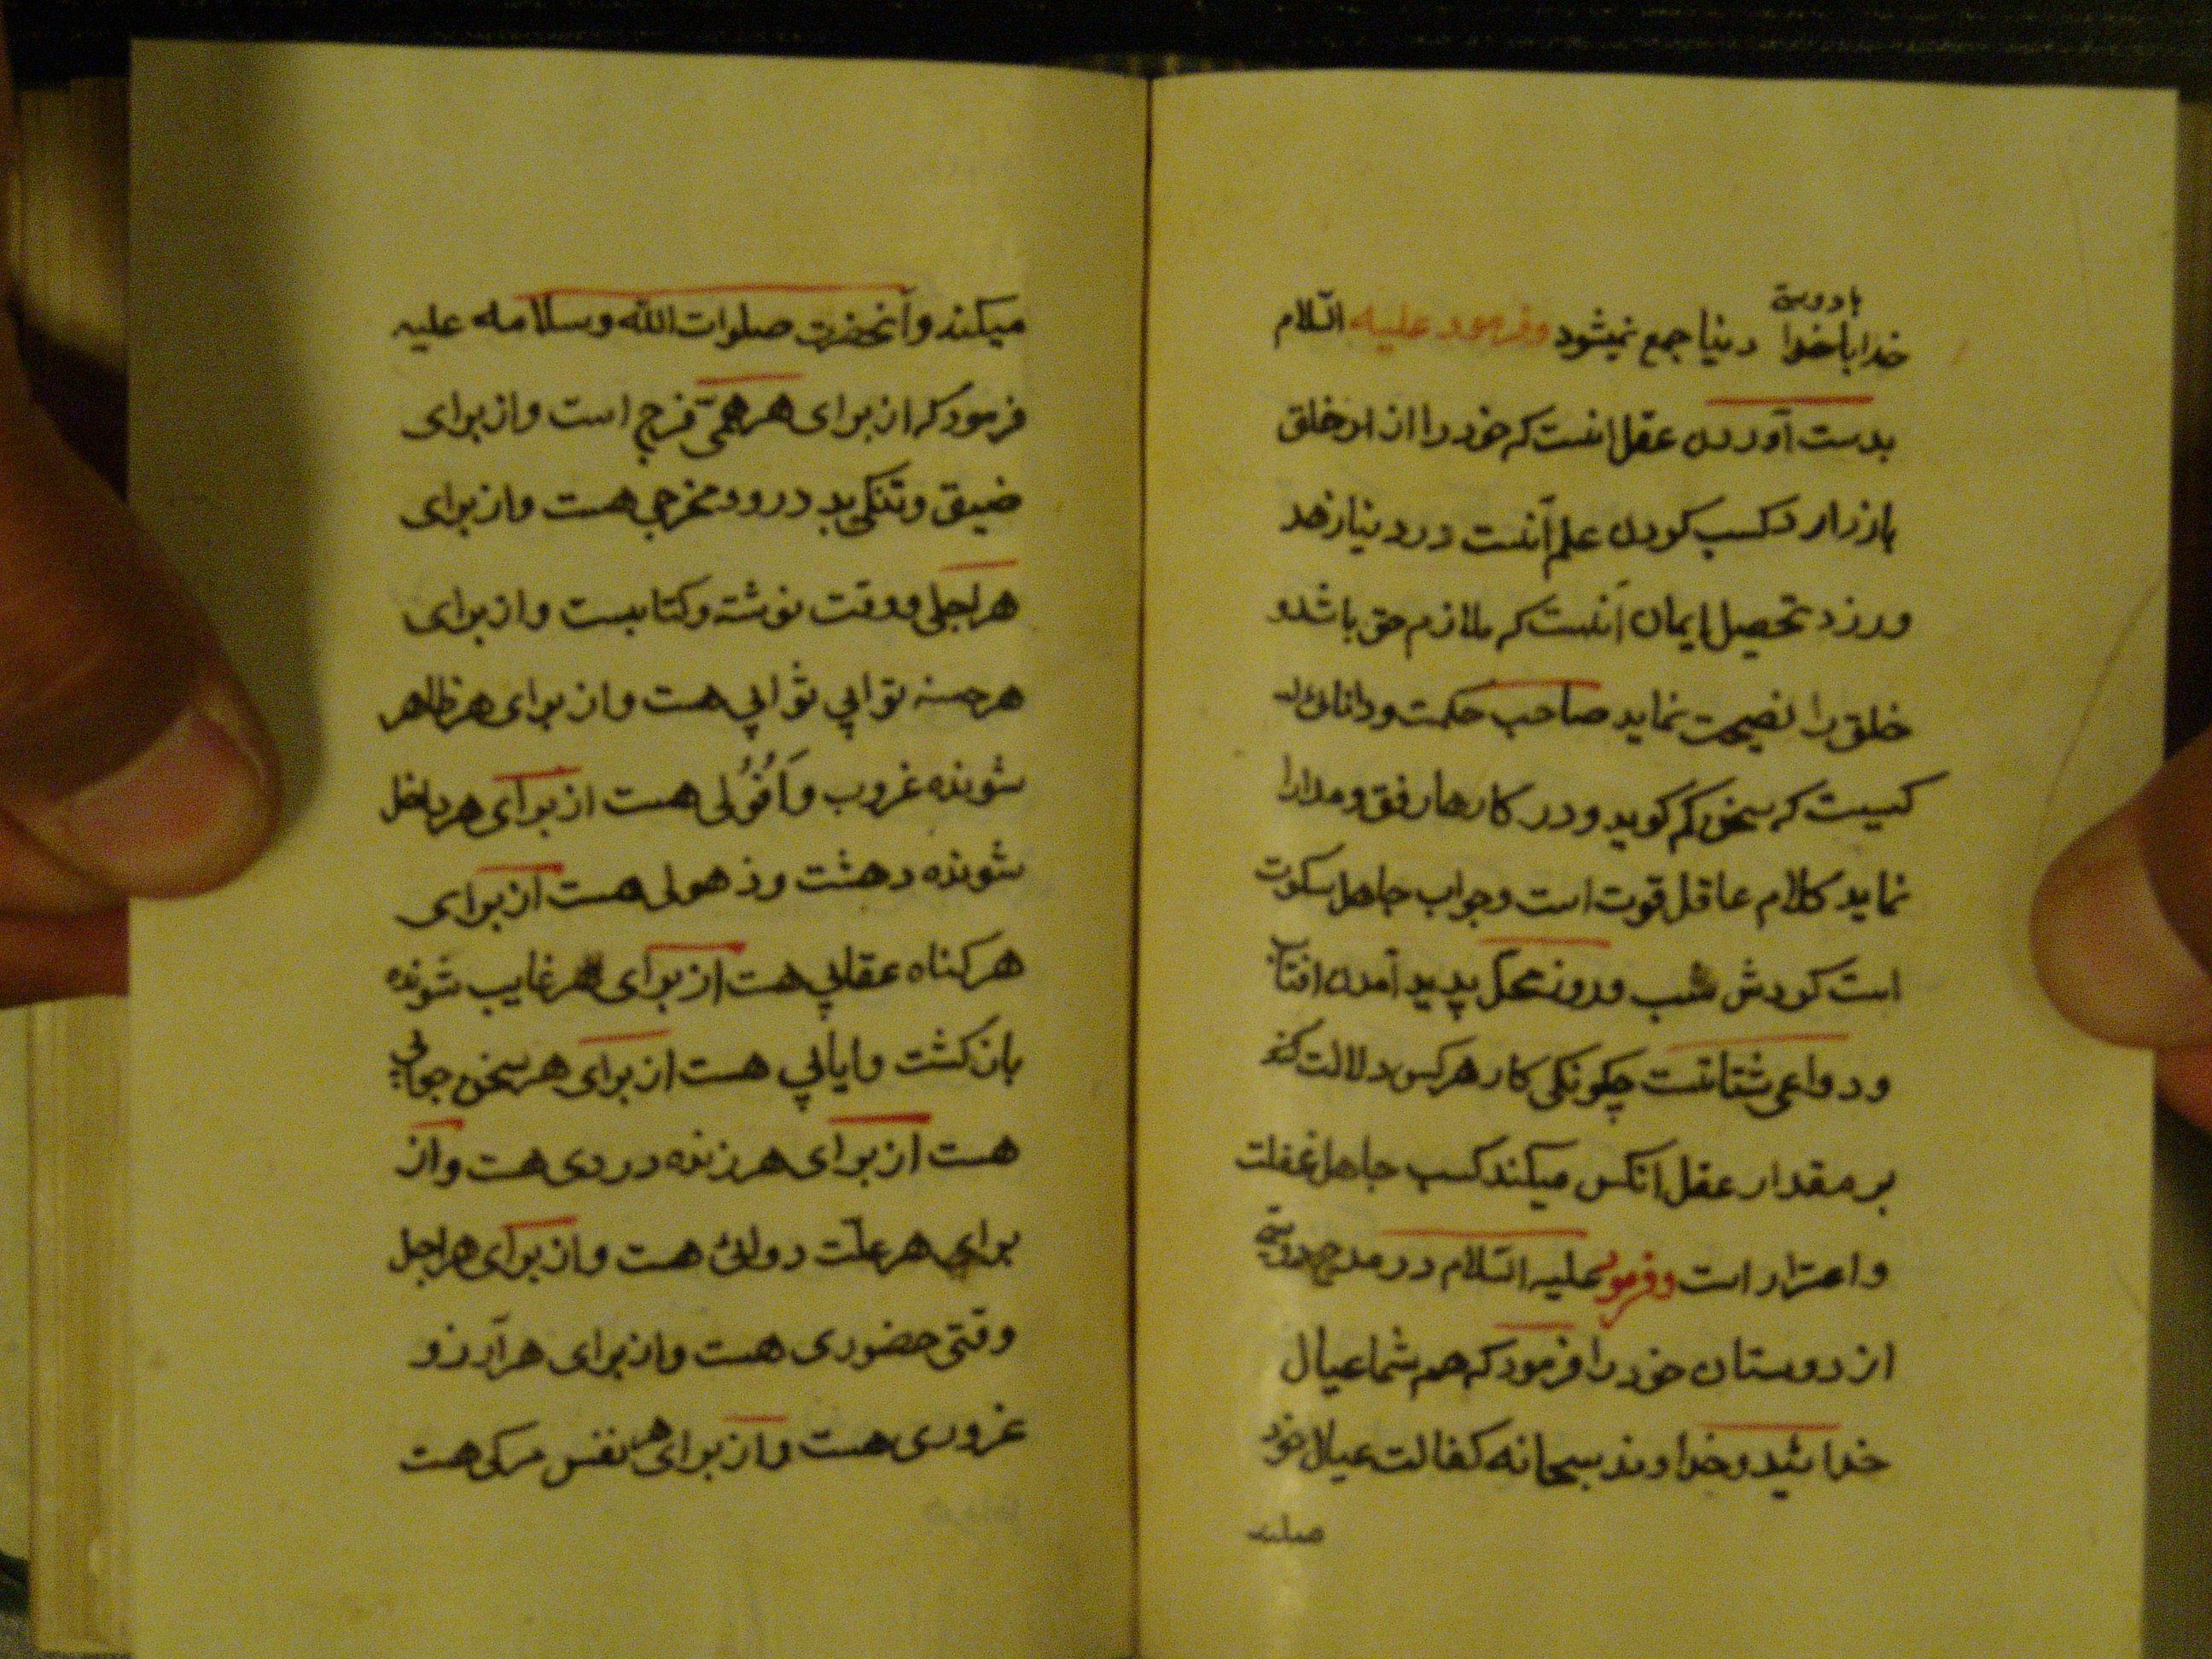 با دوستی
خدا با خدا دنیا جمع نمیشود وفرمود علیه السلام
بدست آوردن عقل انست که خود را از از خلق
باز دارد کسب کردن علم آنست در دنیا زهد
ورزد تحصیل ایمان آنست که ملازم حق باشد و
خلق را نصیحت نماید صاحب حکمت و دانائی
کسیت که سخن کم کوید و در کارها رفق و مدارا
نماید کلام عاقل قوت است وجواب جاهل سکوت
است کردش شب وروز محل پدید آمدن افتاب
چکونکی کار هر کس دلالت کند
بر مقدار عقل انکس میکند کسب جاهل غفلت
و است وفرمود علیه السلام در مدح دوستی
از دوستان خود را فرمود که هم شما عیال
خدائید وخداوند سبحانه کفالت عیال خود
میکند
میکند وآنحضرت صلوات الله وسلامه علیه
فرمود که از برای هر همّی فرج است واز برای
ضیق وتنکی در و مخرجی هست واز برای
هر اجلی ووقت نوشته وکتابیست واز برای
هر حسنه ثوابی ثوابی هست واز برای هر ظاهر
شونده غروب وَاُفُولی هست از برای هر داخل
شونده دهشت وذهولی هست از برای
هر کناه عقابی هست از برای هر غایب شونده
بازکشت وایابی هست از برای هر سخن جوابی
هست از برای هر زنده دردی هست واز
برای هر علّت دوائی هست واز برای هر اجل
وقتی حضوری هست واز برای هر آرزو
غروری هست واز برای هر نفس مرکی هست